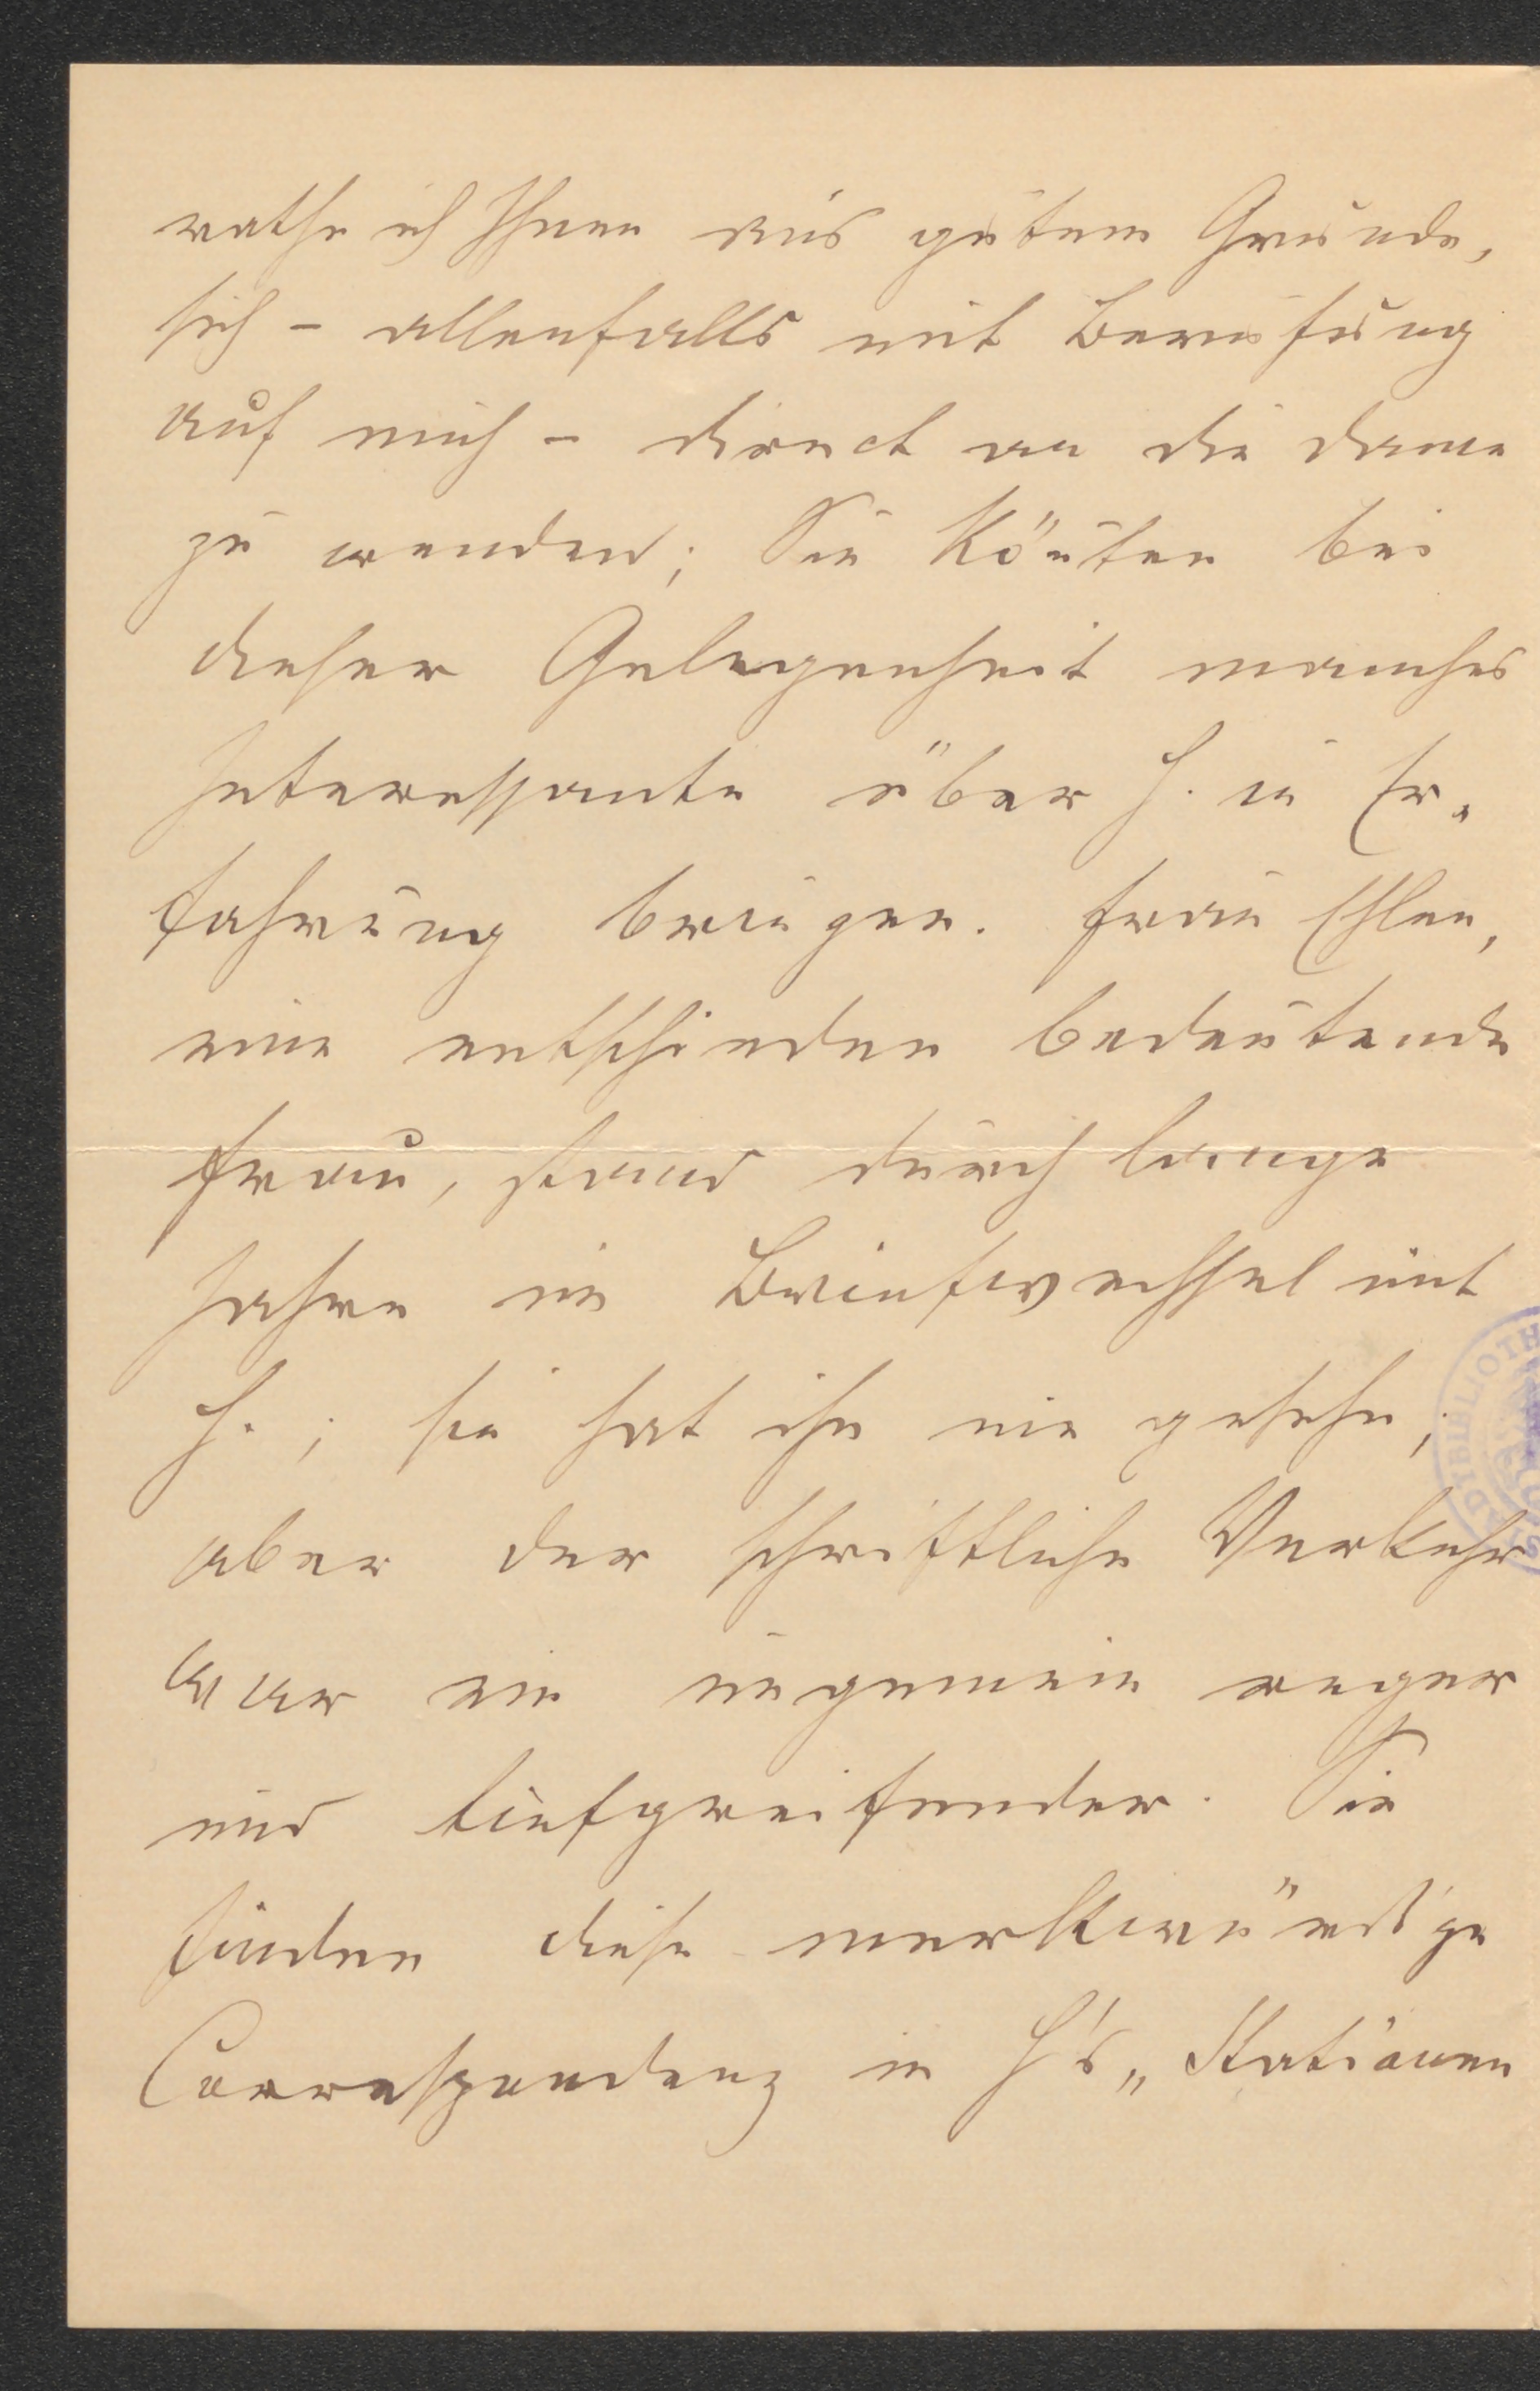 rathe ich Ihnen aus gutem Grunde,
sich – allenfalls mit Berufung
auf mich – direct an die Dame
zu wenden; Sie könten bei
dieser Gelegenheit manches
Interessante über H. in Er-
fahrung bringen. Frau
eine entschieden bedeutende
Frau, stand durch lange
Jahre in Briefwechsel mit
H.; sie hat ihn nie gesehn;
aber der schriftliche Verkehr
war ein ungemein reger
und tiefgreifender. Sie
finden diese merkwürdige
Correspondenz in H's „Stationen
BIBLIOTH